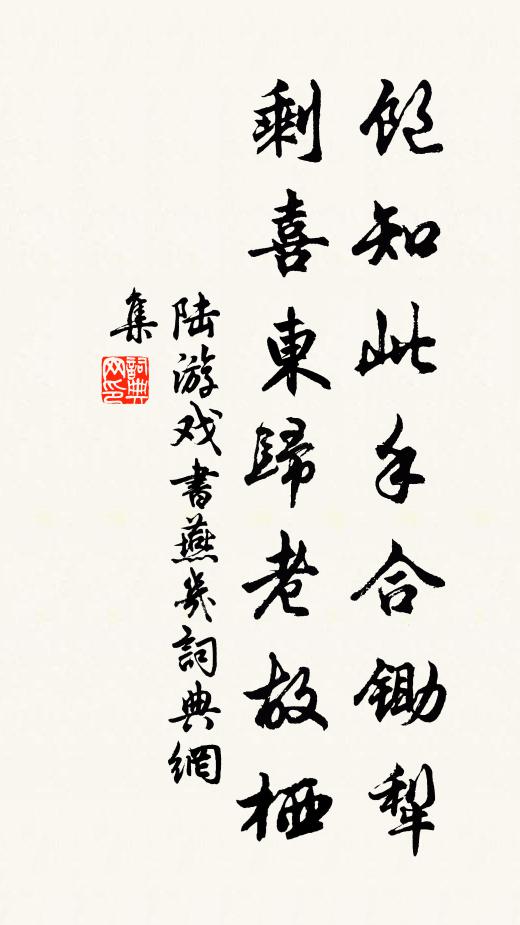 飽知此手合鋤犁
剩喜東歸老故栖
陆游戏書燕幾詞典網
集
詞典
网印